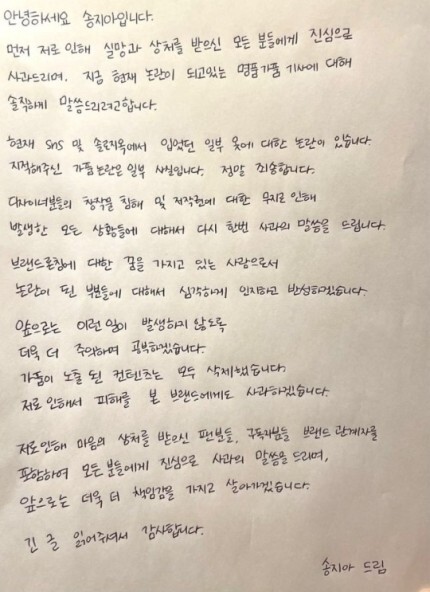 안녕하세요 송지아입니다.
먼저 저로 인해 실망과 상처를 받으신 모든 분들에게 진심으로
사과드리며, 지금 현재 논란이 되고있는 명품가품 기사에 대해
솔직하게 말씀드리려고합니다.
현재 SNS 및 솔로지옥에서 입었던 일부 옷에 대한 논란이 있습니다.
지적해주신 가품논란은 일부 사실입니다. 정말 죄송합니다.
디자이너분들의 창작물 침해 및 저작권에 대한 무지로 인해
발생한 모든 상황들에 대해서 다시 한번 사과의 말씀을 드립니다.
브랜드론칭에 대한 꿈을 가지고 있는 사람으로서
논란이 된 부분들에 대해서 심각하게 인지하고 반성하겠습니다.
앞으로는 이런일이 발생하지 않도록
더욱 더 주의하며 공부하겠습니다.
가품이 노출 된 컨텐츠는 모두 삭제했습니다.
저로 인해서 피해를 본 브랜드에게도 사과하겠습니다.
저로인해 마음의 상처를 받으신 팬분들, 구독자분들 브랜드 관계자를
포함하여 모든 분들에게 진심으로 사과의 말씀을 드리며,
앞으로는 더욱 더 책임감을 가지고 살아가겠습니다.
긴 글 읽어주셔서 감사합니다.
송지아 드림